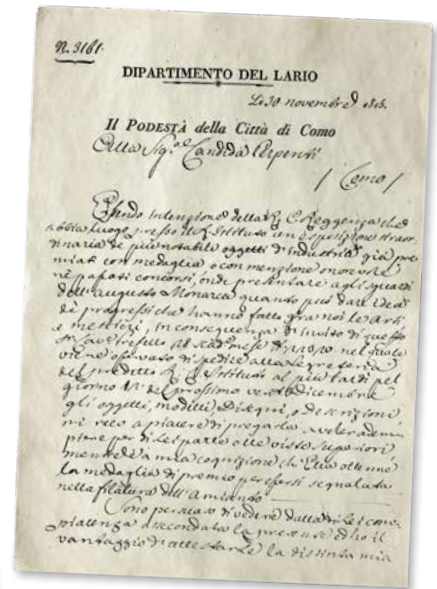 N. 3161.
DIPARTIMENTO DEL LARIO
Li 30 novembre 1815.
Il PODESTÀ della Città di Como
Alla Sig.a Candida Lerpenti
/ Como /
Essendo intenzione della R. C. Reggenza che
abbia luogo presso il R. Istituto un esposizione straor
dinaria de' più notabili oggetti d'industria già pre
miati con medaglia o con menzione onorevole
ne' passati concorsi, onde presentare agli sguardi
dell'augusto Monarca quanto può dare idea
de' progressi che hanno fatto fra noi le Arti
e mestieri, in conseguenza di invito di questo
Sr. Cav. Prefetto nel quale
viene di spedire alla Segreteria
del predetto R. Istituto al più tardi pel
giorno del prossimo dicembre
gli oggetti, modelli, Disegni, o descrizioni,
mi reco a piacere di pregarla a voler adem
piere per di Lei parte alle viste Superiori,
mentr'è a mia cognizione ch'Ella ottenne
la medaglia di premio per essersi segnalata
nella filatura dell'Amianto.
Sono persuaso di vedere dalla di Lei com
piacenza secondata la presente ed ho il
vantaggio di attestarle la distinta mia